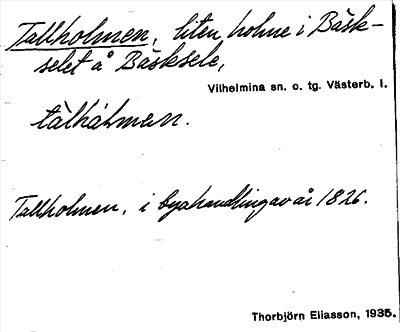 Tallholmen, liten holme i Bäsk-
selet å Bäsksele,
Vilhelmina sn. o. tg. Västerb. l.
tàlhálmæn.
Tallholmen, i byahandling av år 1826.
Thorbjörn Eliasson, 1935.